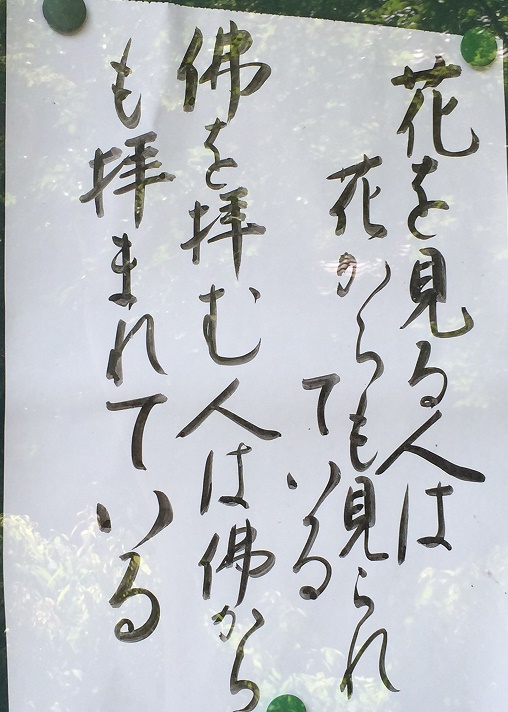 花を見る人は
花からも見られ
ている
佛を拝む人は佛から
も拝まれている